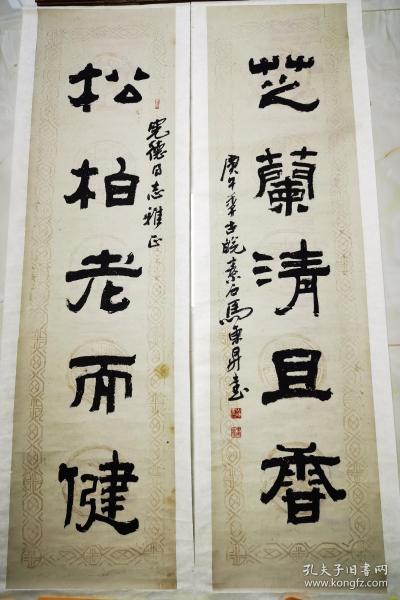 芝蘭清且香
庚午季古皖素石馬東昇書
松柏老而健
憲德同志雅正
孔夫子旧书网
www.kongfz.com